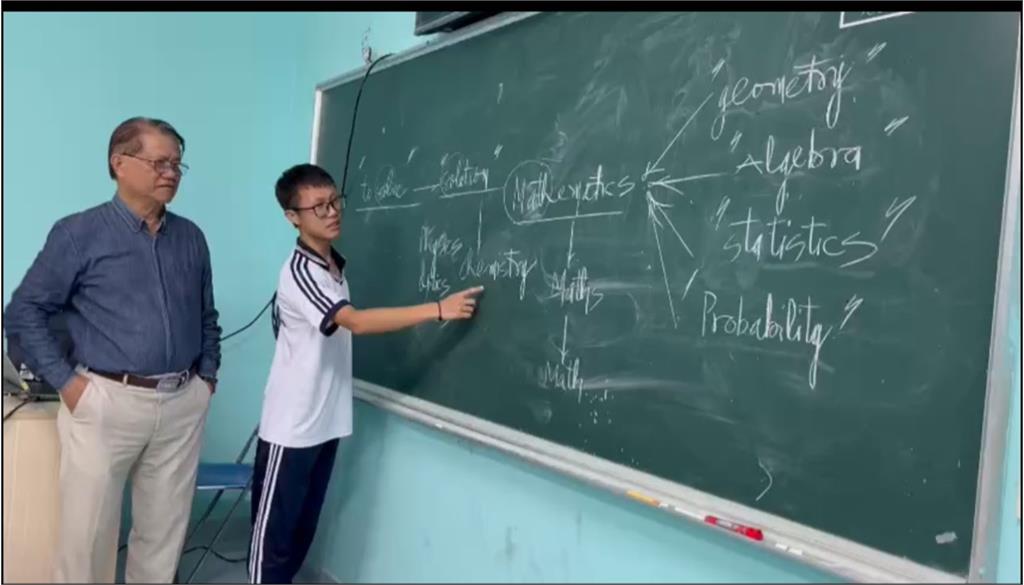 "geometry"
"Algebra"
"to solve" → "Solution" Mathematics
"statistics"
Physics
chemistry
Maths
"Probability"
Math